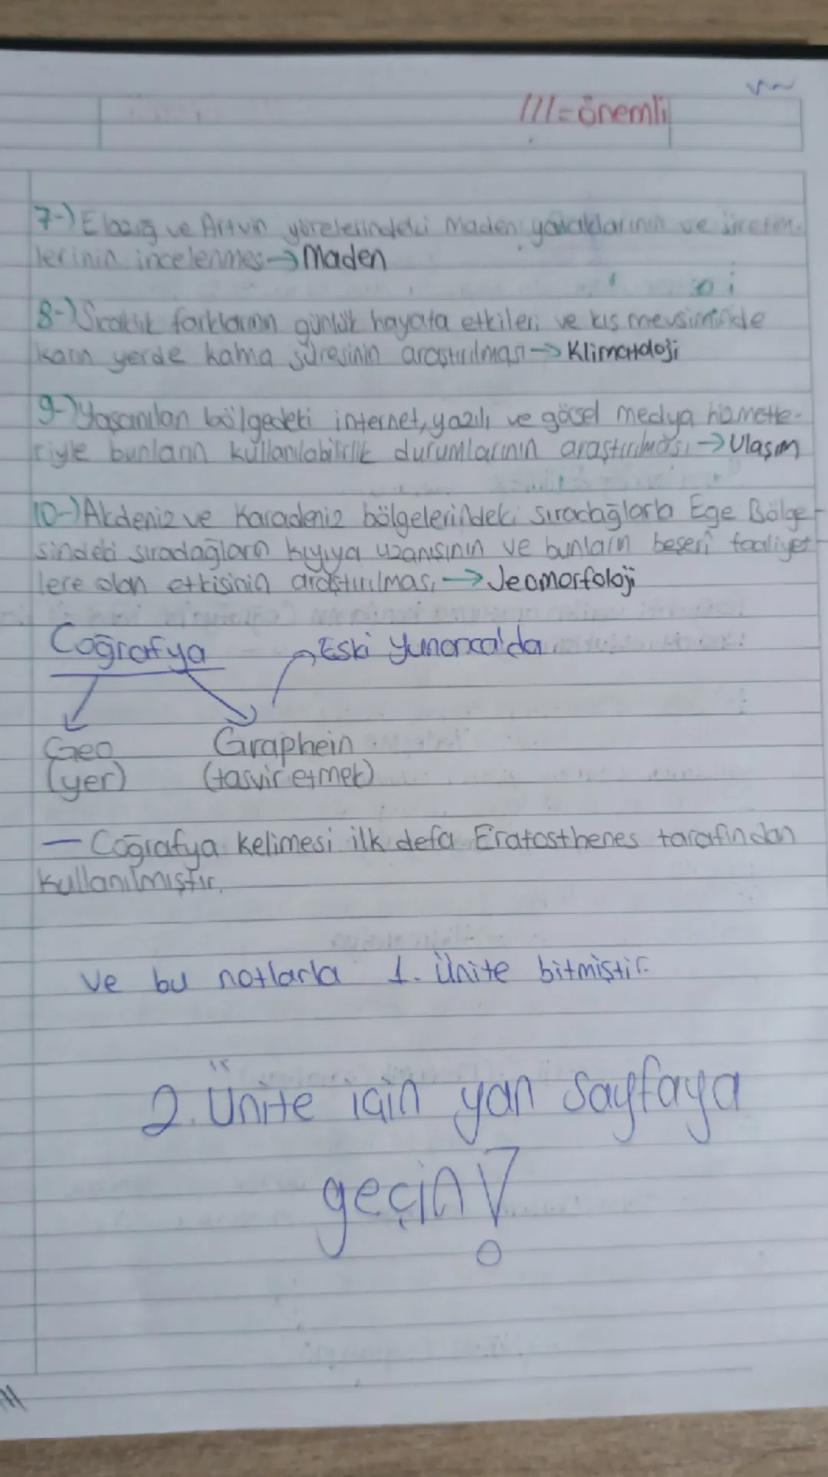 ///=önemli
7-) Elazığ ve Artvin yörelerindeki Maden yataklarının ve üretim
lerinin incelenmes→Maden
8-) Sıcaklık farklarının günlük hayata etkileri ve kış mevsiminde
karın yerde kalma süresinin araştırılması→Klimatoloji
9-) Yaşanılan bölgedeki internet, yazılı ve görsel medya hizmetle-
riyle bunların kullanılabilirlik durumlarının araştırılması→Ulaşım
10-) Akdeniz ve Karadeniz bölgelerindeki sıradağlarla Ege Bölge-
sindeki sıradağların kıyıya uzanışının ve bunların beşeri faaliyet-
lere olan etkisinin araştırılması→Jeomorfoloji
Coğrafya Eski Yunanca'da
Geo Graphein
(yer) (tasvir etmek)
— Coğrafya kelimesi ilk defa Eratosthenes tarafından
kullanılmıştır.
ve bu notlarla 1. Ünite bitmiştir.
2. Ünite için yan sayfaya
geçin!